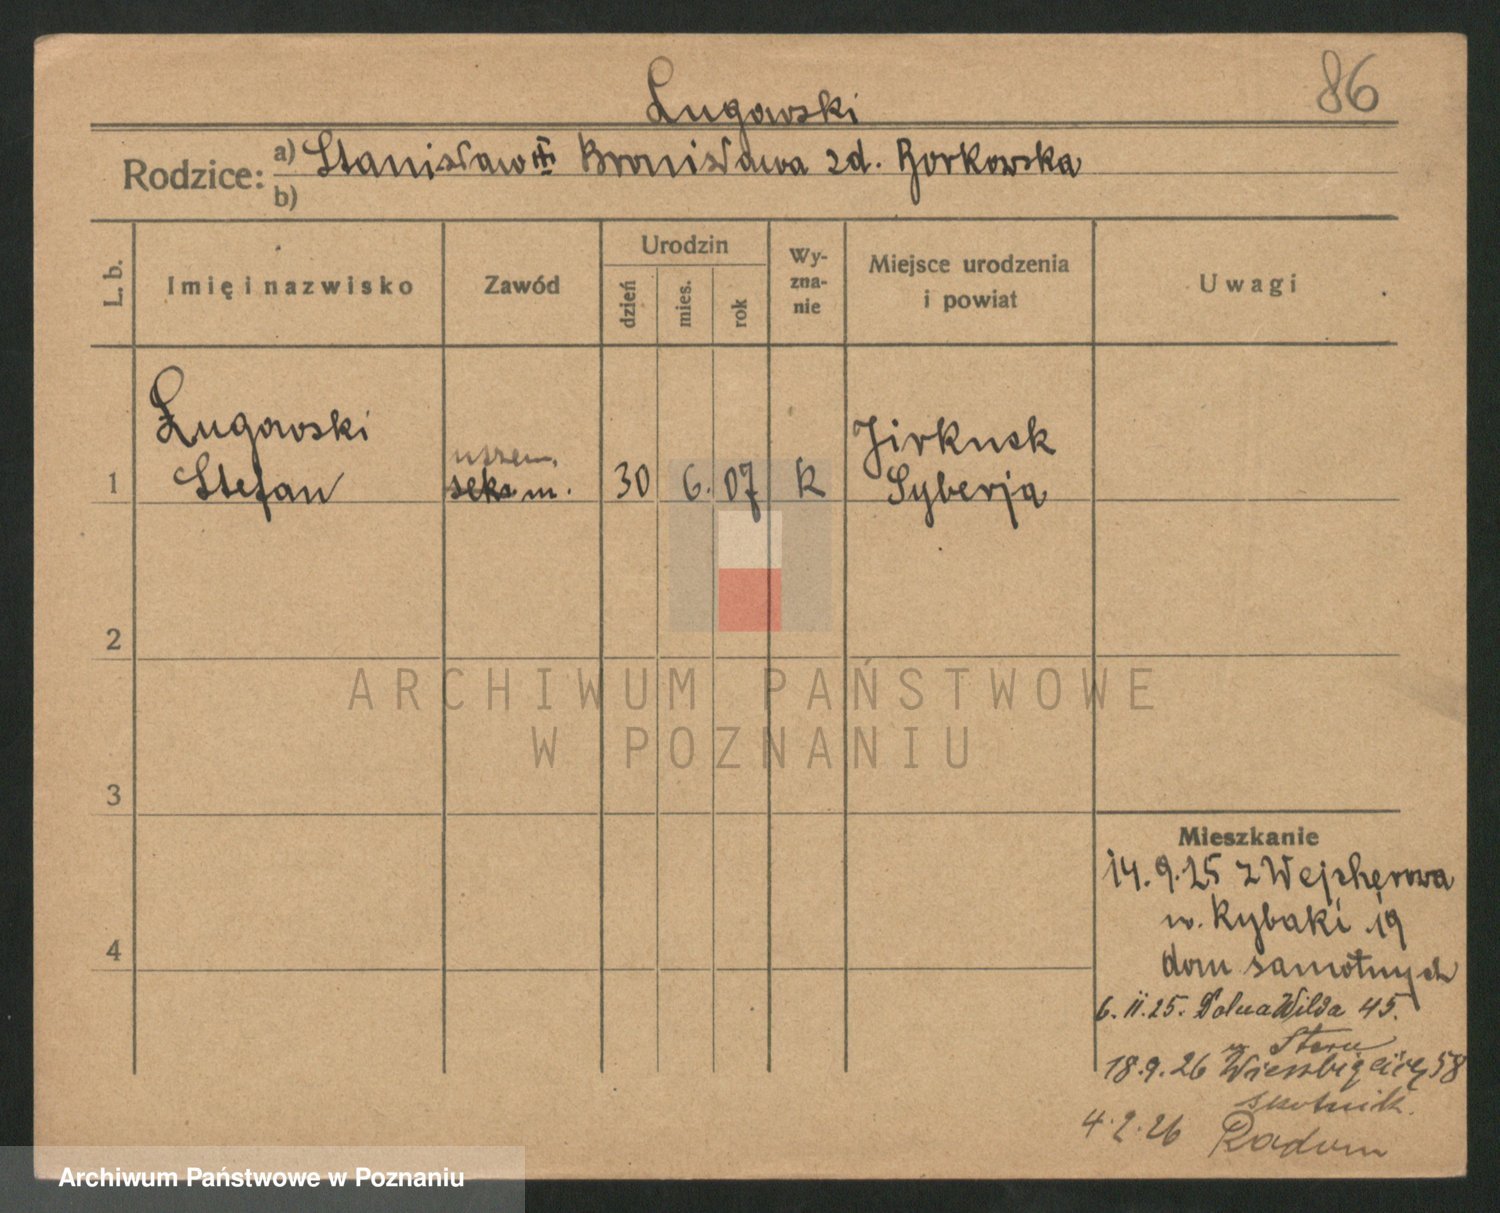 86
Ługowski
Rodzice: a) Stanisław Bronisława zd. Borkowska
b)
L. b. Imię i nazwisko Zawód Urodzin dzień mies. rok Wyznanie Miejsce urodzenia i powiat Uwagi
Ługowski Jirkusk
uczeń.
1 Stefan 30 6. 07 k Syberja
2
ARCHIWUM PAŃSTWOWE
W POZNANIU
3
Mieszkanie
14.9.25 z Wejcherowa
w. Rybaki 19
4 dom samotnych
6.11.25. Dolna Wilda 45.
w Stern
18.9.26 Wierzbięcice 58
4.2.26 Radom
Archiwum Państwowe w Poznaniu